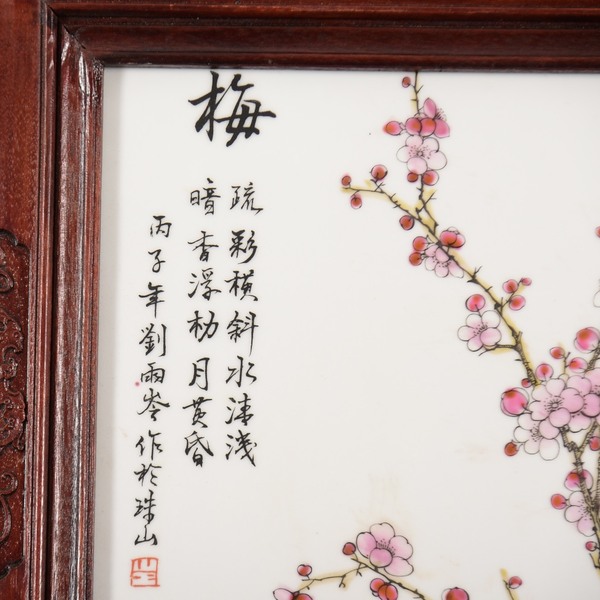 梅
疏彩横斜水清浅
暗香浮枌月黄昏
丙子年劉雨岑作於珠山